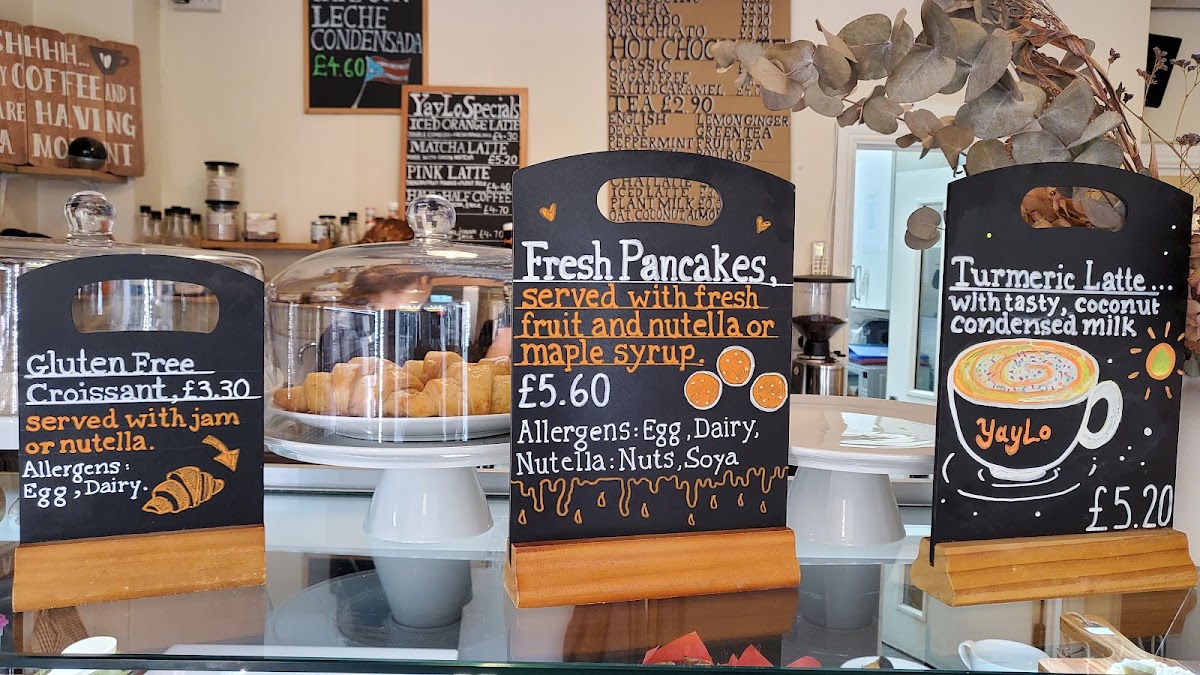 HHHH...
COFFEE AND I
ARE HAVING
A MOMENT
LECHE
CONDENSADA
£4.60
YayLo Specials
ICED ORANGE LATTE
£4.30
MATCHA LATTE
£5.20
PINK LATTE
HALF HALF COFFEE
£4.70
£4.70
MOCHA
CORTADO
MACCHIATO
HOT CHOC
CLASSIC
SUGAR FREE
SALTED CARAMEL
TEA £2.90
ENGLISH LEMON GINGER
DECAF GREEN TEA
PEPPERMINT FRUIT TEA
ROOIBOS
ICED LATTE
PLANT MILK
OAT, COCONUT, ALMOND
Gluten Free
Croissant, £3.30
served with jam
or nutella.
Allergens:
Egg, Dairy.
Fresh Pancakes,
served with fresh
fruit and nutella or
maple syrup.
£5.60
Allergens: Egg, Dairy,
Nutella: Nuts, Soya
Turmeric Latte...
with tasty, coconut
condensed milk
YayLo
£5.20